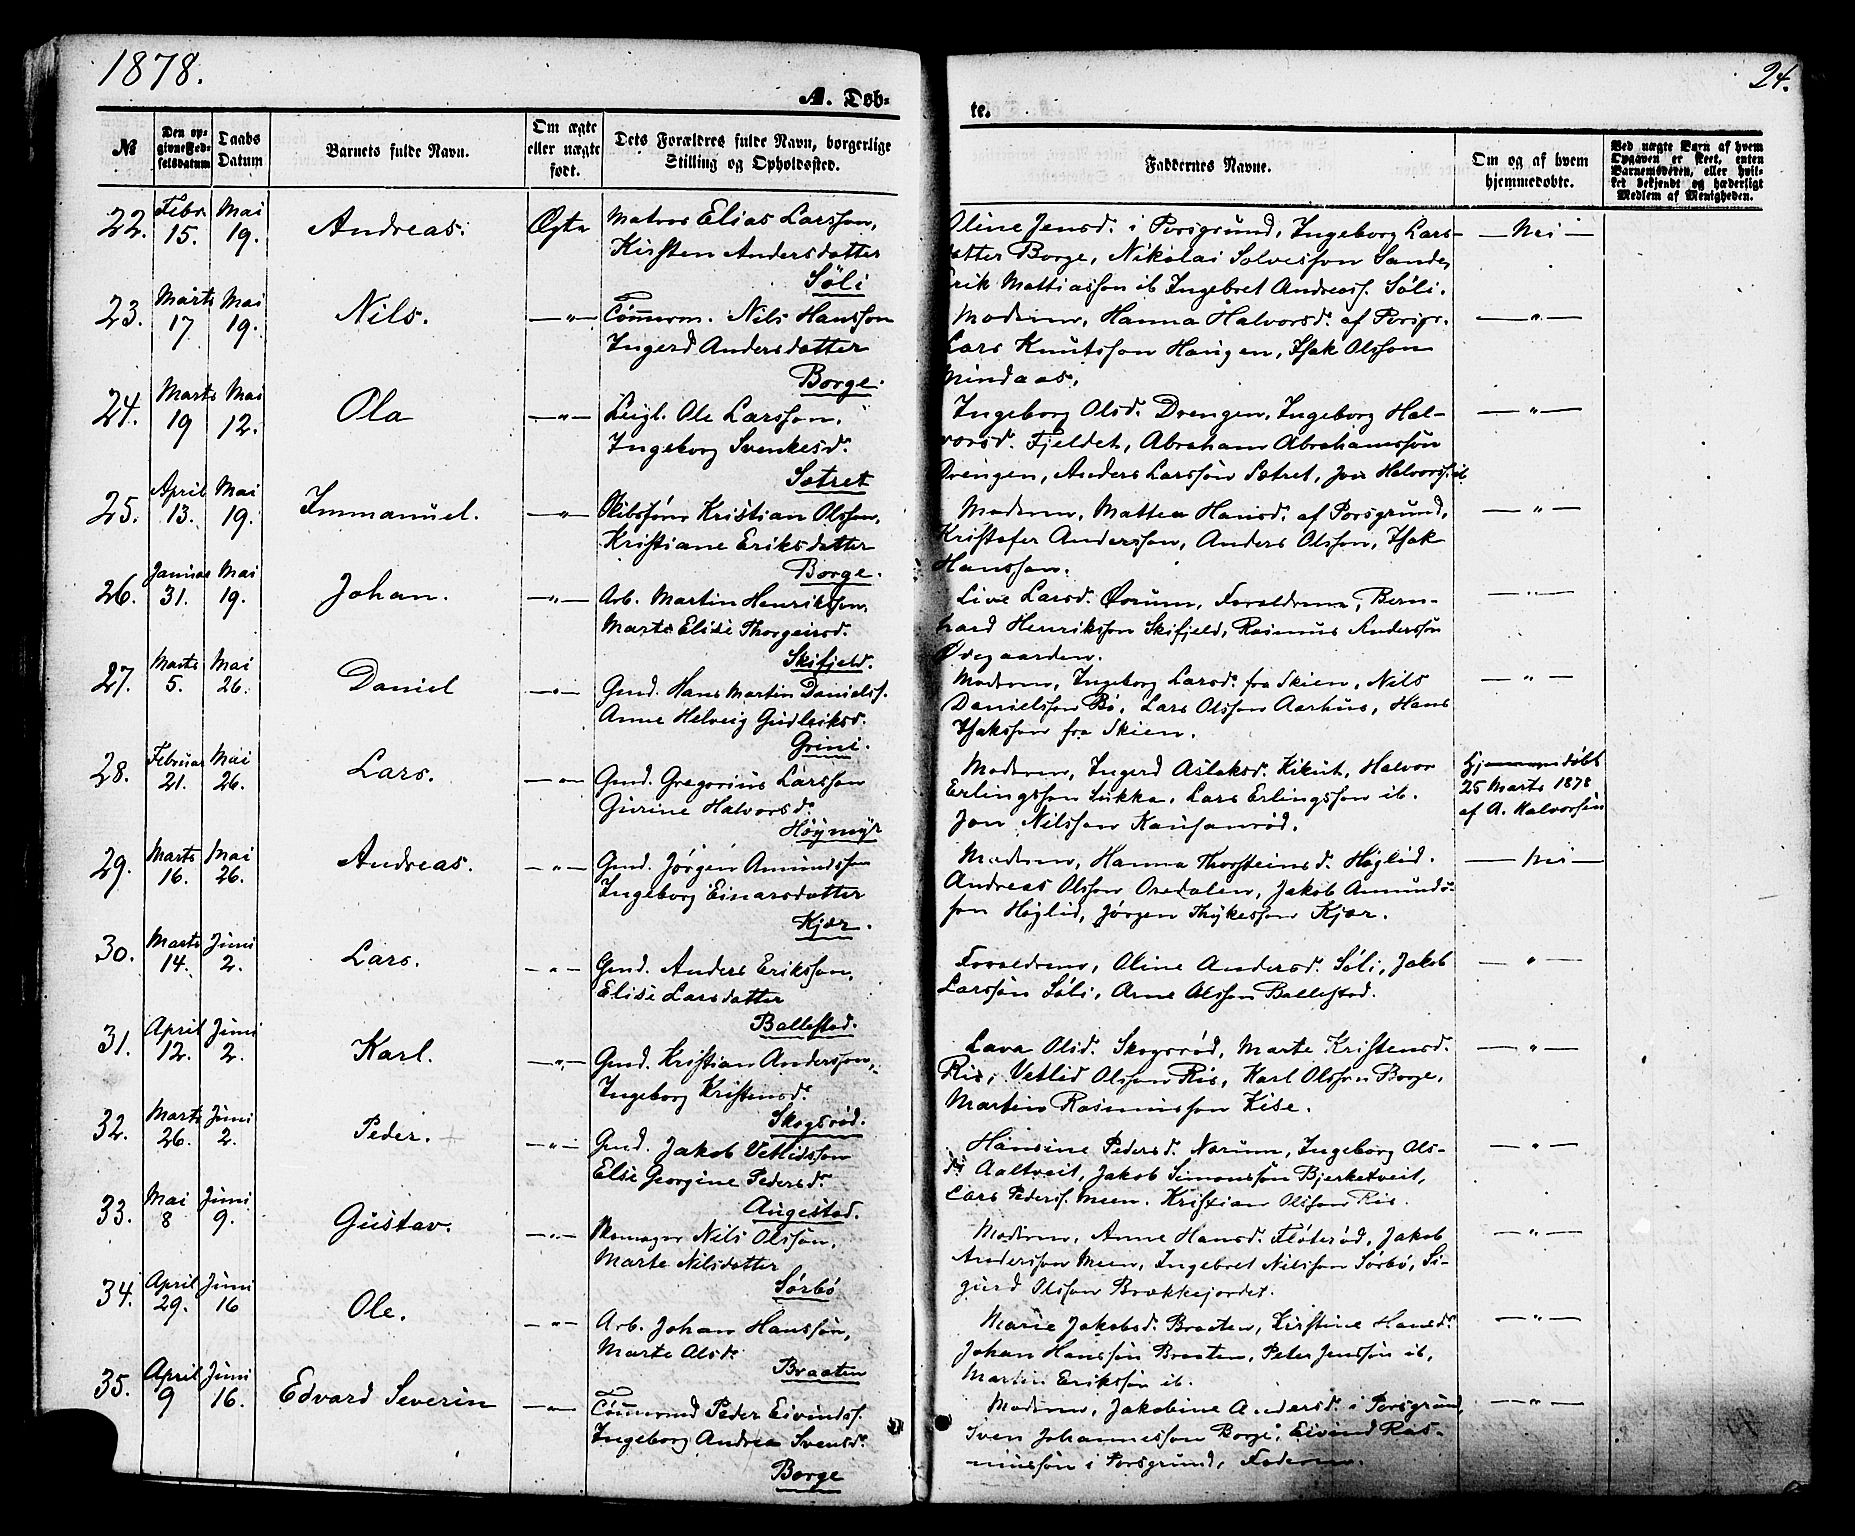 1878.
24.
A. Døb-
te.
№
Den op-
givne Fød-
selsdatum
Daabs
Datum
Barnets fulde Navn.
Om ægte
eller uægte
født.
Dets Forældres fulde Navn, borgerlige
Stilling og Opholdssted.
Faddernes Navne.
Om og af hvem
hjemmedøbte.
Ved uægte Barn af hvem
Opgaven er skeet, enten
Barnemoderen, eller hvil-
ket bekjendt og hæderligt
Medlem af Menigheden.
22. Febr. 15. Mai 19. Andreas. Ægte
Matros Elias Larssøn,
Kirsten Andersdatter
Søli
Oline Jensd. i Porsgrund, Ingeborg Lars-
datter Borge, Nikolai Solvessøn Sande,
Erik Mattiassøn ib Ingebret Andreass. Søli.
— Nei —
23. Marts 17 Mai 19. Nils. — " —
Tømmerm. Nils Hanssøn
Ingerd Andersdatter
Borge.
Moderen, Hanna Halvorsd. af Porsgr.
Lars Knutssøn Haugen, Isak Olssøn
Mindaas.
— " —
24. Marts 19 Mai 12. Ola — " —
Leigl. Ole Larssøn,
Ingeborg Svenkesd.
Sætret
Ingeborg Olsd. Drengen, Ingeborg Hal-
vorsd. Fjeldet, Abraham Abrahamssøn
Drengen, Anders Larssøn Sætret, Jon Halvorss. ib
— " —
25. April 13. Mai 19. Immanuel. — " —
Skibsfører Kristian Olssøn,
Kristiane Eriksdatter
Borge.
Moderen, Mattea Hansd. af Porsgrund,
Kristofer Anderssøn, Anders Olssøn, Isak
Hanssøn.
— " —
26. Januar 31. Mai 19. Johan. — " —
Arb. Martin Henrikssøn,
Marte Elise Thorgeirsd.
Skifjeld.
Live Larsd. Ørum, Forældrene, Bern-
hard Henrikssøn Skifjeld, Rasmus Anderssøn
Øvegaarden.
— " —
27. Marts 5. Mai 26. Daniel — " —
Gmd. Hans Martin Daniels.
Anne Helveig Gudleiksd.
Grini.
Moderen, Ingeborg Larsd. fra Skien, Nils
Danielssøn Bø, Lars Olssøn Aarhus, Hans
Isakssøn fra Skien.
— " —
28. Februar 21. Mai 26. Lars. — " —
Gmd. Gregorius Larssøn
Gurine Halvorsd.
Høymyr
Moderen, Ingerd Aslaksd. Kikut, Halvor
Erlingssøn Lukka, Lars Erlingssøn ib.
Jon Nilssøn Kausanrød.
Hjemmedøbt
25 Marts 1878
af A. Halvorsen
29. Marts 16. Mai 26. Andreas. — " —
Gmd. Jørgen Amundssøn
Ingeborg Einarsdatter
Kjær.
Moderen, Hanna Thorsteinsd. Høglid.
Andreas Olssøn Oredalen, Jakob Amunds-
søn Høglid, Jørgen Thykessøn Kjær.
— Nei —
30. Marts 14. Juni 2. Lars. — " —
Gmd. Anders Erikssøn,
Elise Larsdatter
Ballestad.
Forældrene, Oline Andersd. Søli, Jakob
Larssøn Søli, Arne Olssøn Ballestad.
— " —
31. April 12. Juni 2. Karl. — " —
Gmd. Kristian Anderssøn,
Ingeborg Kristensd.
Skogsrød.
Lava Olsd. Skogsrød, Marte Kristensd.
Ris, Vetlid Olssøn Ris, Karl Olssøn Borge,
Martin Rasmussøn Kise.
— " —
32. Marts 26. Juni 2. Peder. — " —
Gmd. Jakob Vetlidssøn
Else Georgine Pedersd.
Augestad.
Hansine Pedersd. Nørum, Ingeborg Ols-
d. Aaltveit, Jakob Simonssøn Bjerketveit,
Lars Peders. Meen. Kristian Olssøn Ris.
— " —
33. Mai 8 Juni 9. Gustav. — " —
Skomager Nils Olssøn,
Marte Nilsdatter
Sørbø
Moderen, Anne Hansd. Fløterød, Jakob
Anderssøn Meen, Ingebret Nilssøn Sørbø, Si-
gurd Olssøn Brækkejordet.
— " —
34. April 29. Juni 16 Ole. — " —
Arb. Johan Hanssøn,
Marte Olsd.
Braaten
Marie Jakobsd. Braaten, Kirstine Hansd.
Johan Hanssøn Braaten, Peter Jenssøn ib,
Martin Erikssøn ib.
— " —
35. April 9 Juni 16. Edvard Severin — " —
Tømmermd Peder Eivinds.
Ingeborg Andrea Svensd.
Borge
Moderen, Jakobine Andersd. i Porsgrund,
Sven Johannessøn Borge, Eivind Ras-
mussøn i Porsgrund, Faderen.
— " —